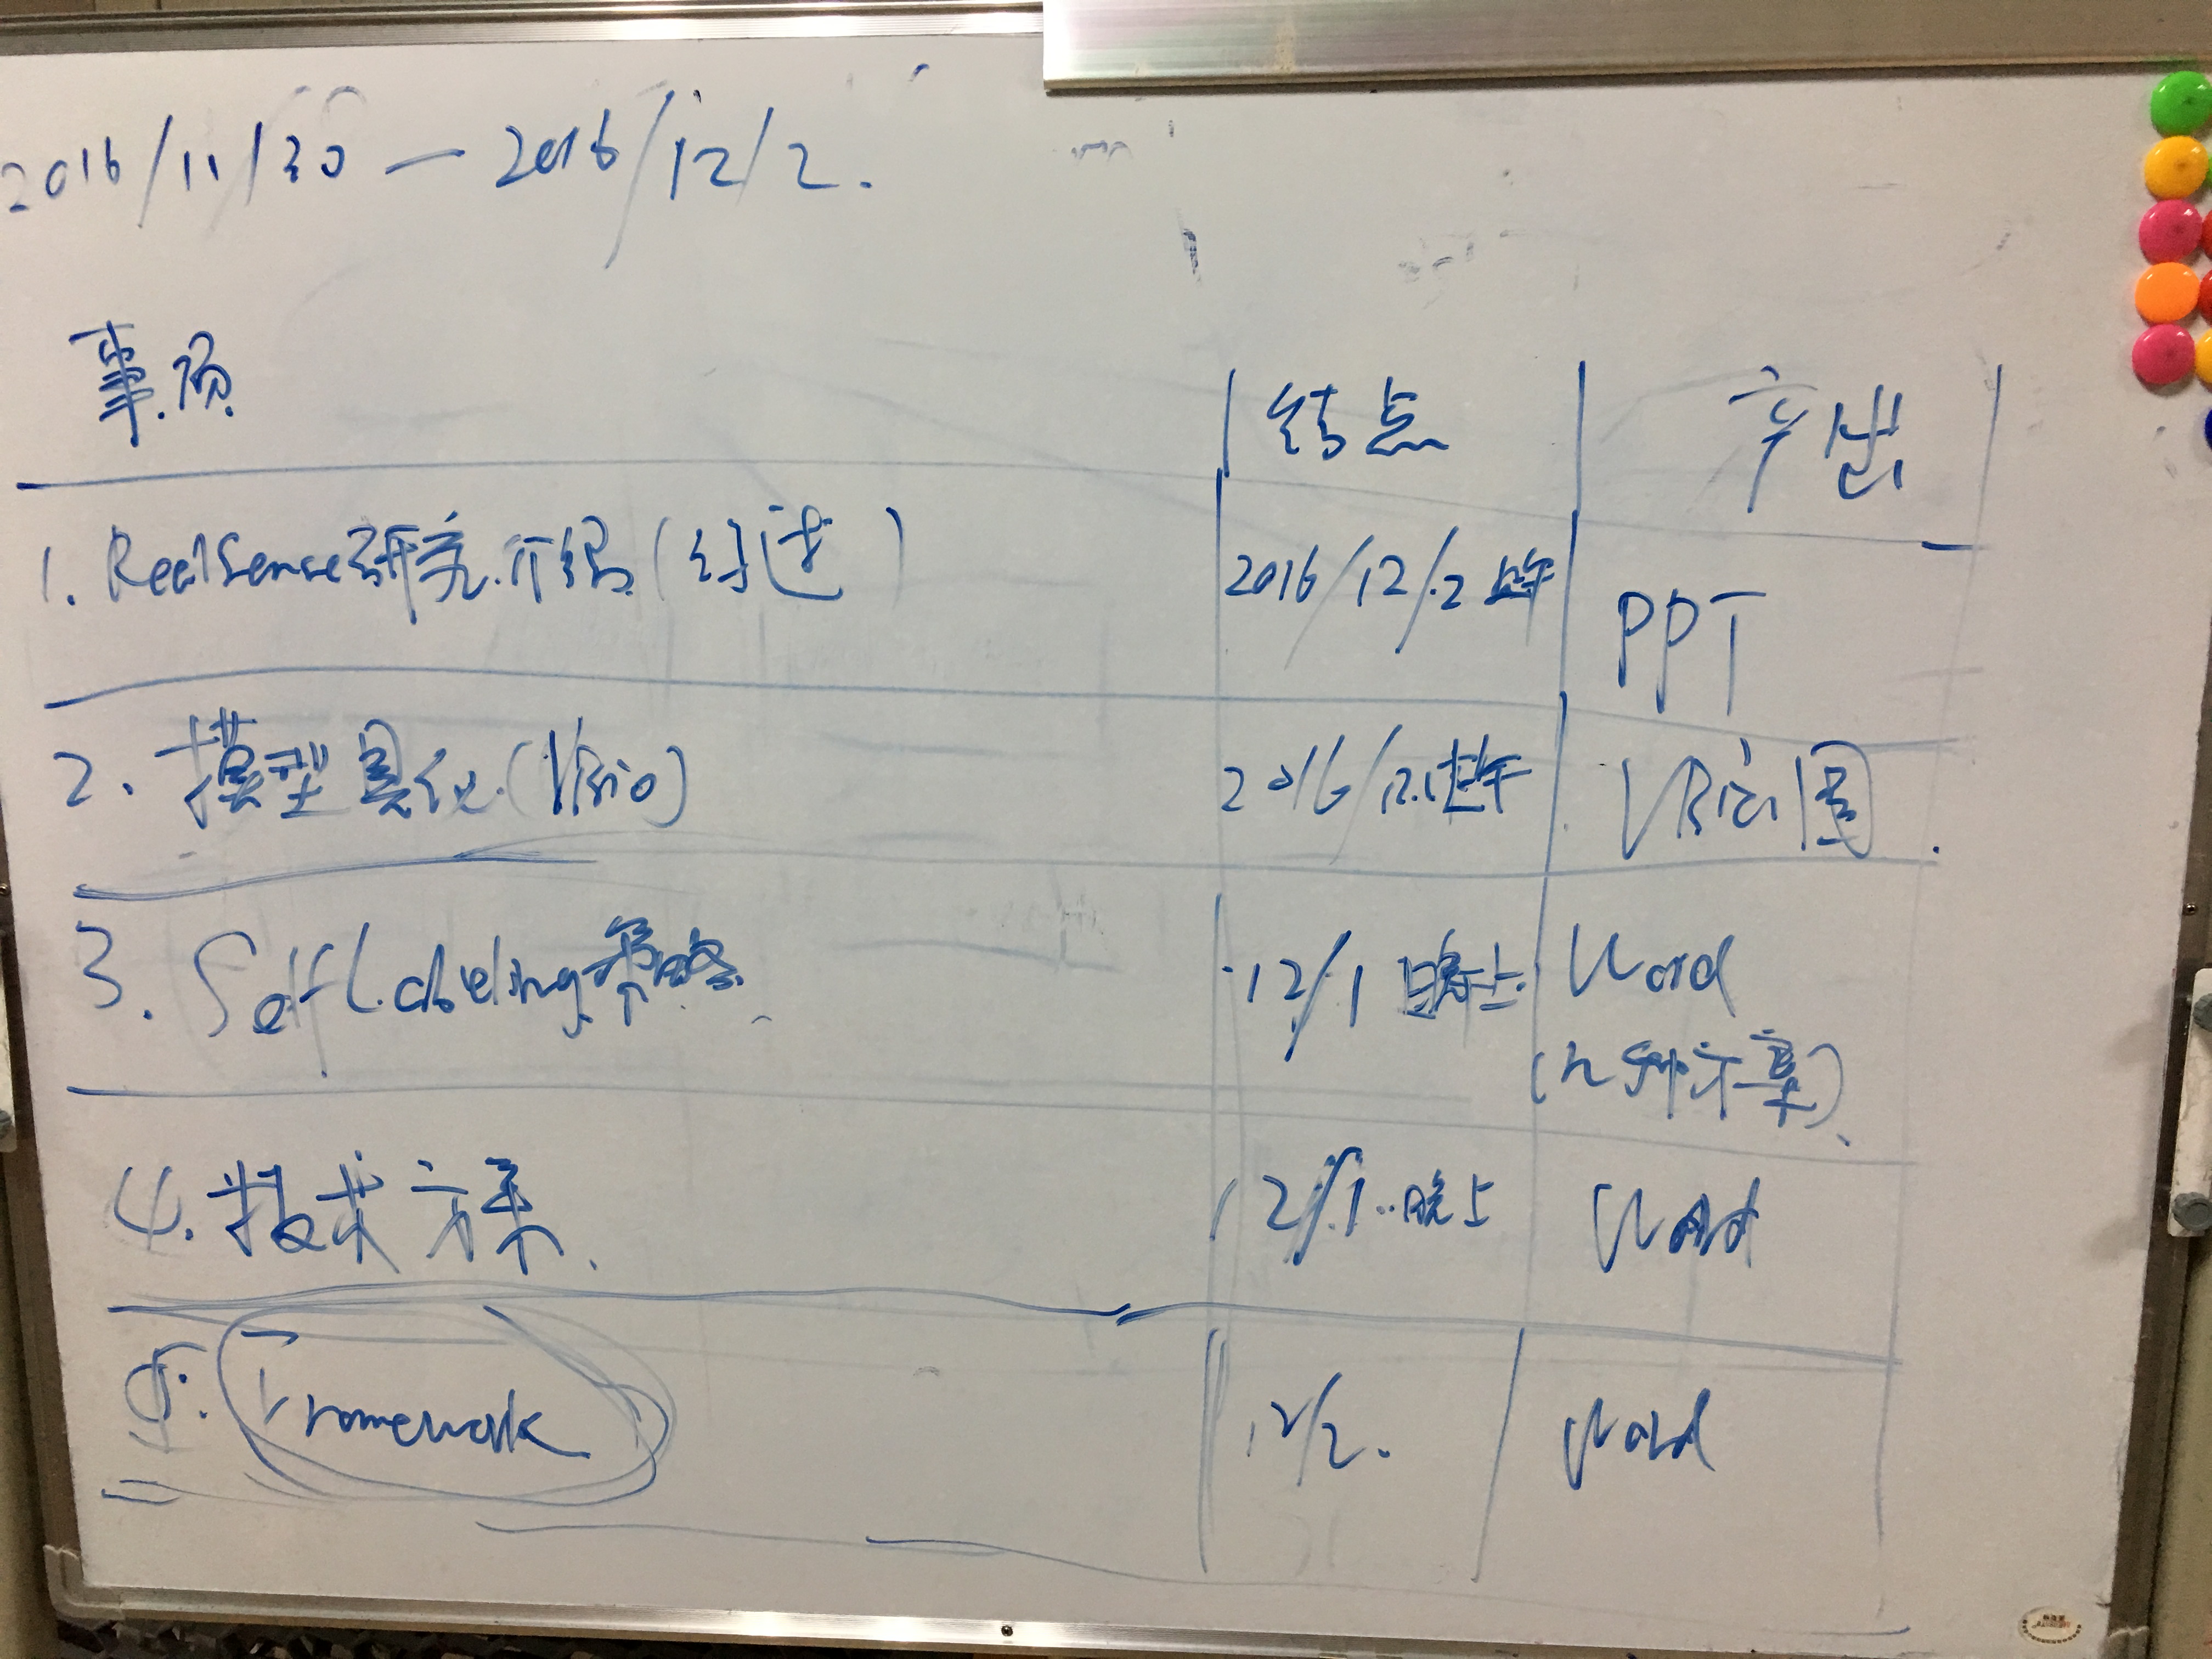 2016/11/30 — 2016/12/2.
事项 结点 产出
1. RealSense研究介绍 ( ) 2016/12/2 上午 PPT
2. 模型具化 (Visio) 2016/12.1 上午 Visio图.
3. Self Labeling策略 12/1 晚上 Word
(n种方案)
4. 技术方案. 12/1 晚上 Word
5. Framework 12/2. Word